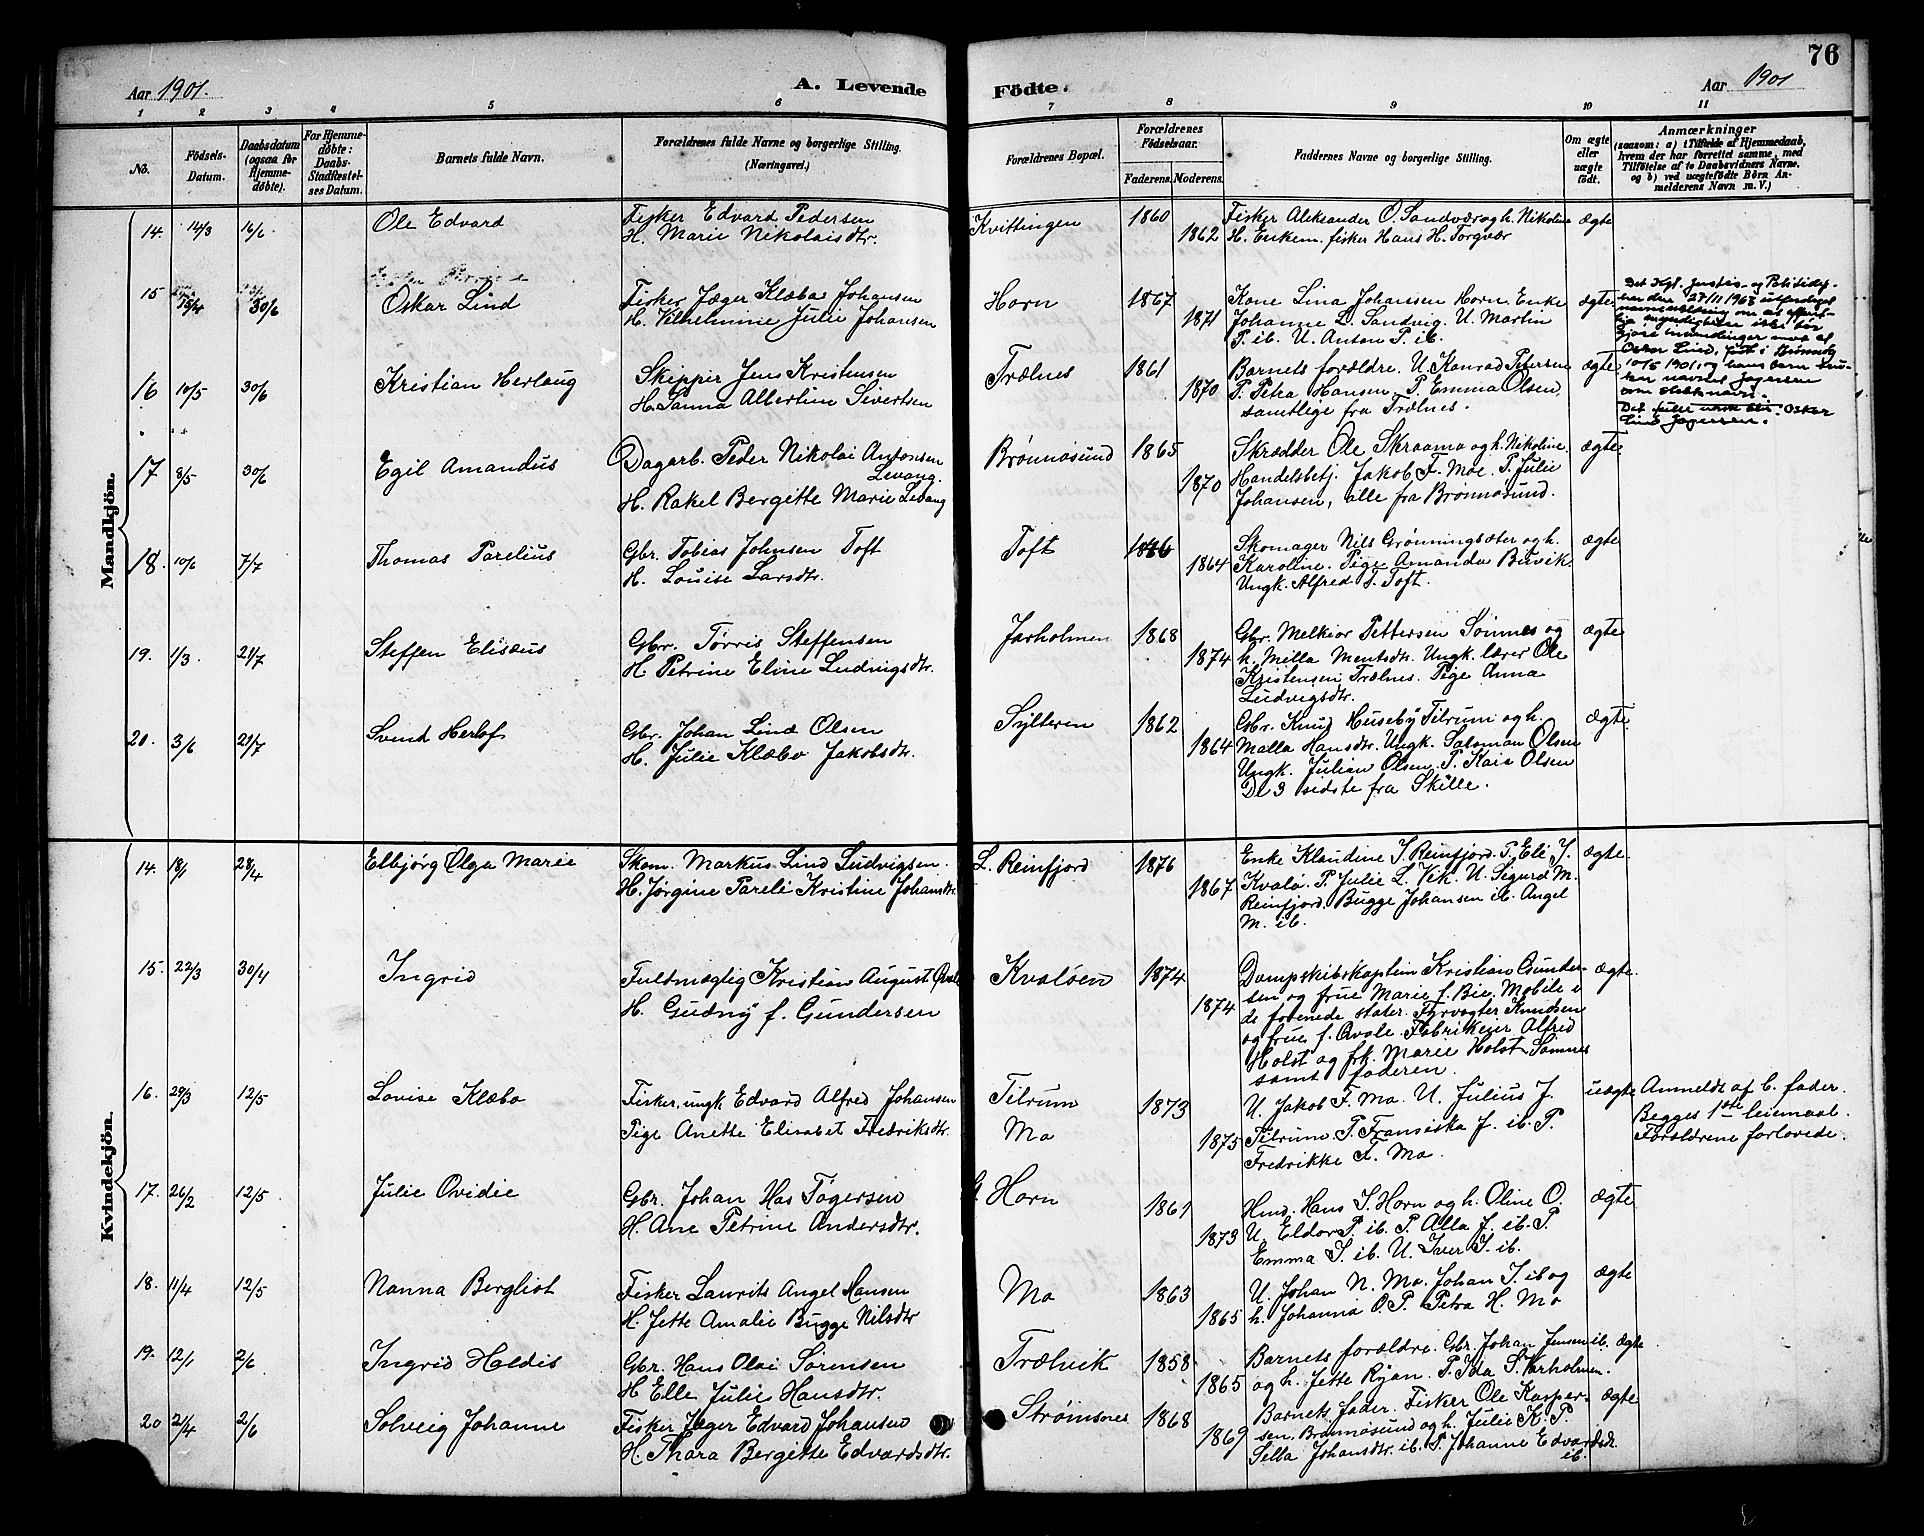 76
Aar 1901.
A. Levende
Födte.
Aar 1901
1 2 3 4 5 6 7 8 9 10 11
No.
Födsels-Datum.
Daabsdatum (ogsaa for Hjemmedöbte).
For Hjemmedöbte: Daabs-Stadfæstelses Datum.
Barnets fulde Navn.
Forældrenes fulde Navne og borgerlige Stilling. (Næringsvei.)
Forældrenes Bopæl.
Forældrenes Födselsaar.
Faderens. Moderens.
Faddernes Navne og borgerlige Stilling.
Om ægte eller uægte födt.
Anmærkninger
(saasom: a) i Tilfælde af Hjemmedaab, hvem der har forrettet samme, med Tilföielse af to Daabsvidners Navne, og b) ved uægtefödte Börn Anmelderens Navn m. V.)
Mandkjön.
14. 14/3 16/6 Ole Edvard
Fisker Edvard Pedersen
H. Marie Nikolaisdtr.
Kvittingen 1860 1862
Fisker Aleksander O. Sandvær og h. Nikoline
H. Enkem. fisker Hans H. Torgvær
ægte
15 15/4 30/6 Oskar Lind
Fisker Jæger Klæboe Johansen
H. Vilhelmine Julie Johansen
Horn 1867 1871
Kone Lina Johansen Horn. Enke
Johanne L. Sandvig. U. Martin
P. ib. U. Anton P. ib.
ægte
Det Kgl. Justis- og Politide-
har den 27/11 1963 utferdiget
navnemelding om at offent-
lige myndigheter ikke har
gjort innvendinger mot at
Oskar Lind, født i Brønnøy
10/5 1901, og hans barn bru-
ker navnet Jægersen
som slektsnavn.
Det fulle navn blir: Oskar
Lind Jægersen.
16 10/5 30/6 Kristian Herlaug
Skipper Jens Kristensen
H. Sanna Albertine Sivertsen
Trælnes 1861 1870
Barnets forældre. U. Konrad Petersen
P. Petra Hansen P. Emma Olsen,
samtlege fra Trælnes.
ægte
17 8/5 30/6 Egil Amandus
Dagarb. Peder Nikolai Antonsen
Levang.
H. Rakel Bergitte Marie Levang
Brønnøsund 1865 1870
Skrædder Ole Skraamo og h. Nikoline
Handelsbetj. Jakob F. Moe. P. Julie
Johansen, alle fra Brønnøsund.
ægte
18. 10/6 7/7 Thomas Parelius
Gbr. Tobias Johnsen Toft
H. Louise Larsdtr.
Toft 1864
Skomager Nils Grønningsæter og h.
Karoline. Pige Amanda Birvik.
Ungk. Alfred T. Toft.
ægte
19. 1/3. 21/7 Steffen Elisæus
Gbr. Tørris Steffensen
H Petrine Eline Ludvigsdtr.
Jarholmen 1868 1874
Gbr. Melkior Pettersen Sømnes og
h. Milla Mentsdtr. Ungk. lærer Ole
Kristensen Trælnes. Pige Anna
Ludvigsdtr.
ægte
20. 3/6 21/7 Svend Herlof
Gbr. Johan Lind Olsen
H. Julie Klæbo Jakobsdtr.
Sylteren 1862 1864
Gbr. Knud Huseby Tilrum og h.
Malla Hansdtr. Ungk. Salomon Olsen
Ungk. Julian Olsen. P. Kaia Olsen
De 3 sidste fra Skille.
ægte
Kvindekjön.
14. 18/1 28/4 Elbjörg Olga Marie
Skom. Markus Lind Ludvigsen.
H. Jørgine Pareli Kristine Johansdtr
L. Reinfjord 1876 1867
Enke Klaudine J. Reinfjord. P. Eli J.
Kvalø. P. Julie L. Vik. U. Sigurd M.
Reinfjord. Bugge Johansen ib. Angel
M. ib.
ægte.
15. 22/3 30/4 Ingrid
Fuldmægtig Kristian August Qvale
H. Gudny f. Gundersen
Kvaløen 1874 1874
Dampskibskaptein Kristian Gunder-
sen og frue Marie f. Bie, Mobile i
de forenede stater. Fyrvogter Knudsen
og frue f. Qvale. Fabrikeier Alfred
Holst og frk. Marie Holst Sømnes
samt faderen.
ægte.
16. 29/3 12/5 Lovise Klæbo
Fisker, ungk Edvard Alfred Johansen
Pige Anette Elisabet Fredriksdtr.
Tilrum
Mo
1873 1875
U. Jakob F. Mo. U. Julius J.
Tilrum. P. Fransiska J. ib. P.
Fredrikke F. Mo.
uægte
Anmeldt af b. fader.
Begges 1ste leiemaal.
Forældrene forlovede.
17. 26/2 12/5 Julie Ovidie
Gbr. Johan Has Tøgersen
H. Ane Petrine Andersdtr.
Horn 1861 1873
Hmd. Hans S. Horn og h. Oline O.
U. Eldor P. ib. P. Alla J. ib. P.
Emma S. ib. U. Iver J. ib.
ægte
18. 11/4 12/5 Nanna Bergliot
Fisker Laurits Angel Hansen
H. Jette Amalie Bugge Nilsdtr
Mo 1863 1865
U. Johan N. Mo. Johan J. ib og
h. Johanna O. P. Petra H. Mo
ægte
19. 12/1 2/6 Ingrid Haldis
Gbr. Hans Olai Sørensen
H Elle Julie Hansdtr.
Trælvik 1858 1865
Barnets forældre. Gbr. Johan Jensen ib.
og h. Jette Ryan. P. Ida S. Varholmen.
ægte
20 2/4 2/6 Solveig Johanne
Fisker Jæger Edvard Johansen
H. Thora Bergitte Edvardsdtr.
Strømsnes 1868 1869
Barnets fader. Fisker Ole Kasper-
sen, Brønnøsund og h. Julie K. P.
Sella Johansdtr. ib. P. Johanne Edvardsd.
ib.
ægte